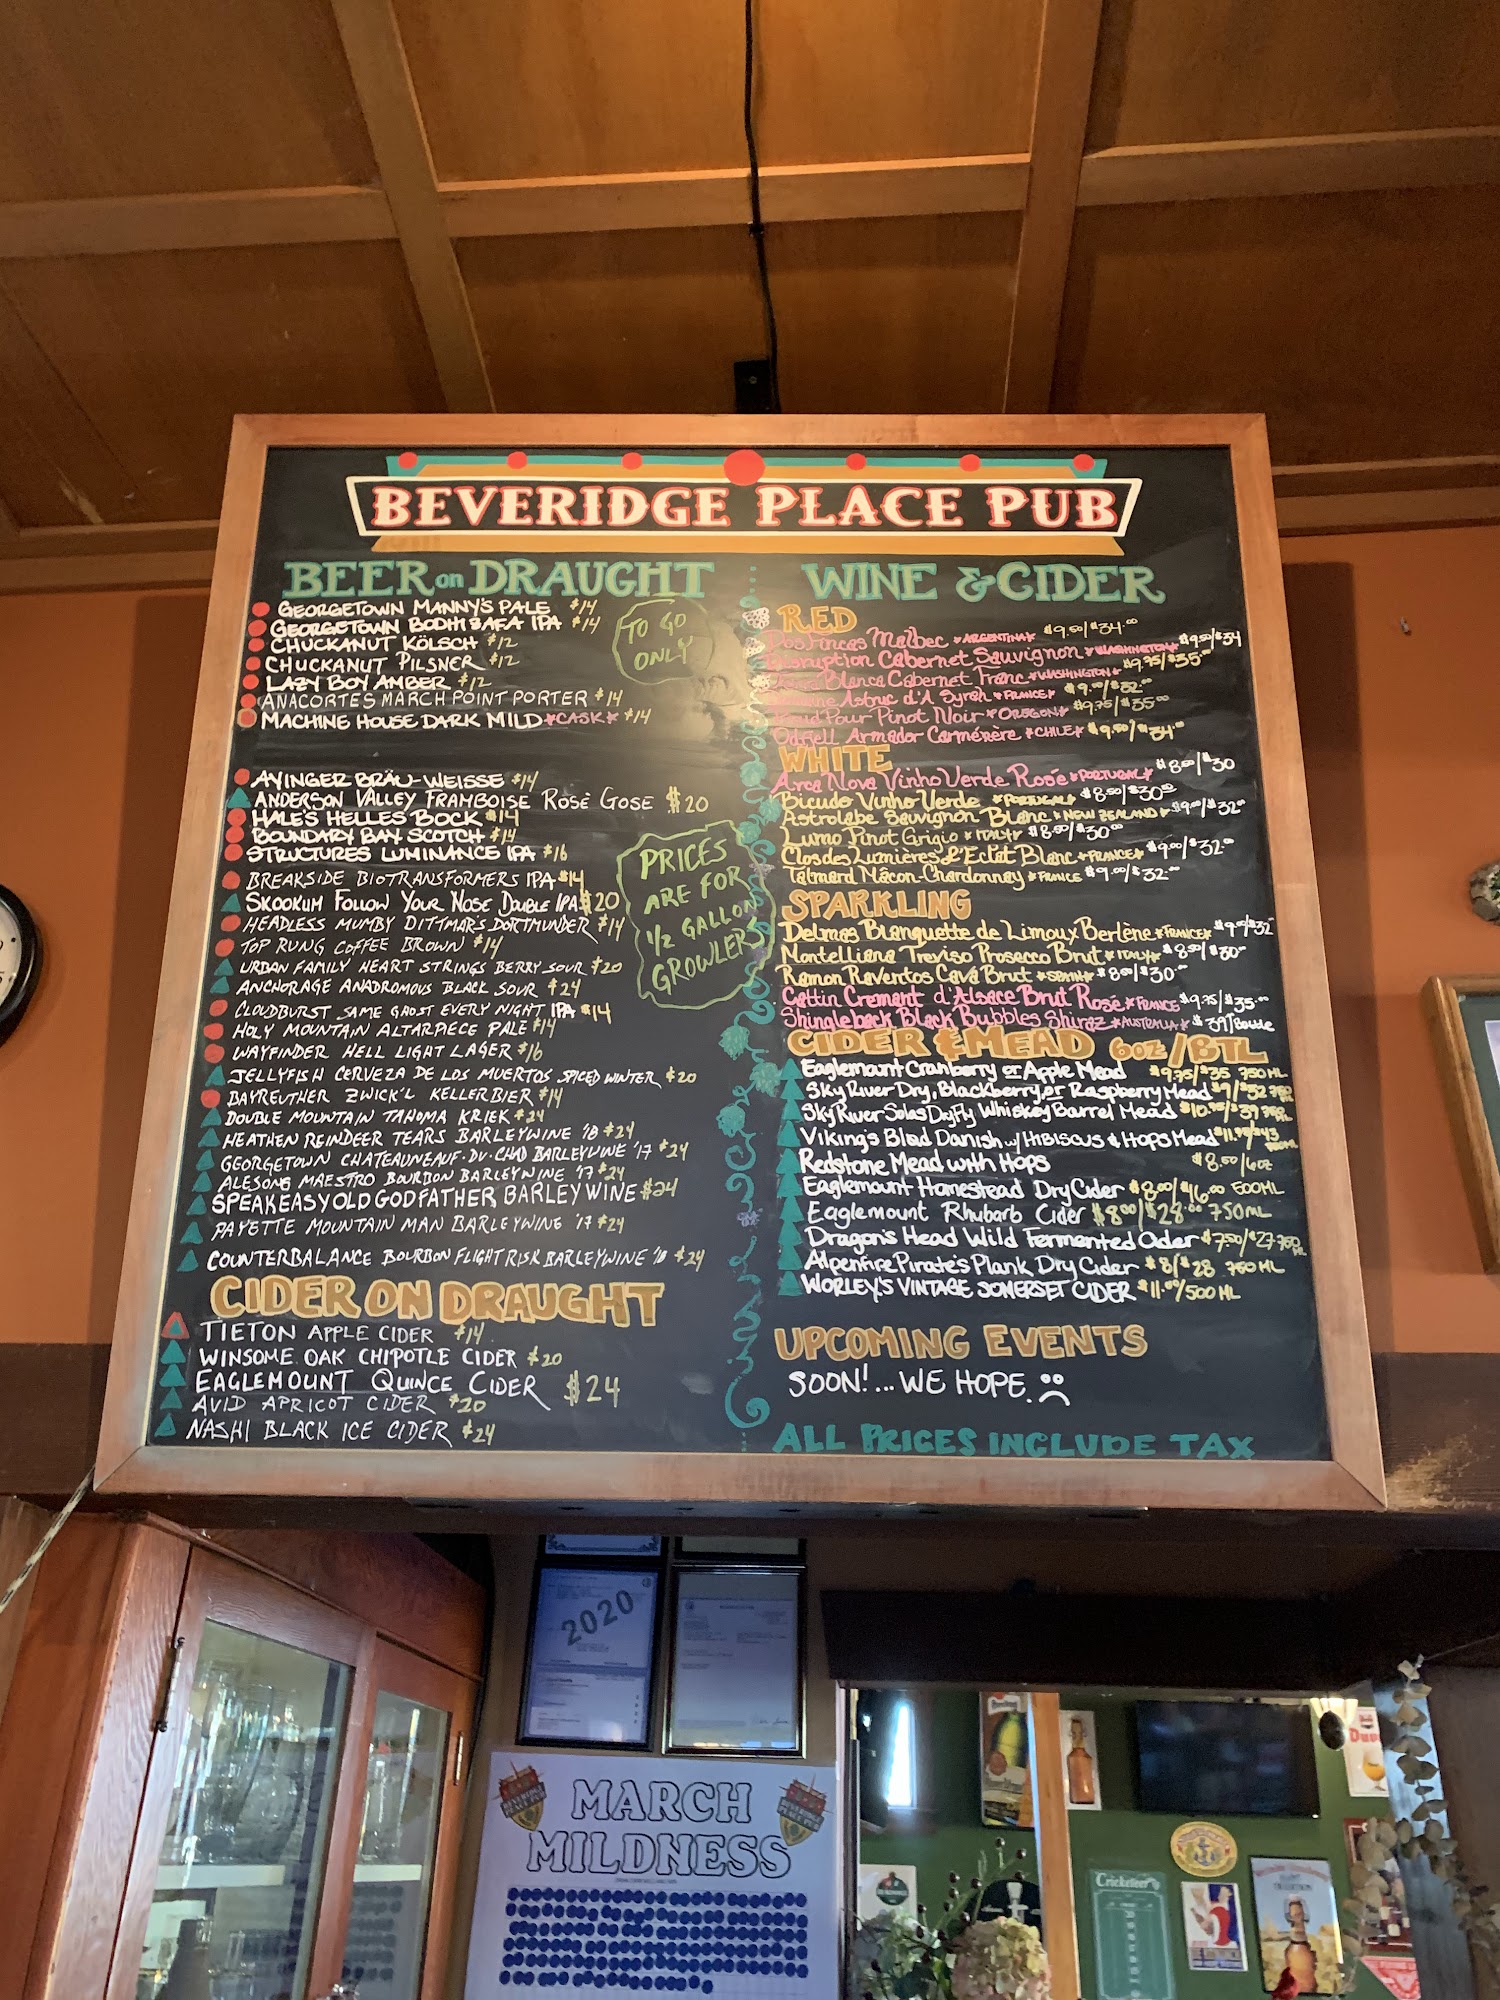 BEVERIDGE PLACE PUB
BEER on DRAUGHT
GEORGETOWN MANNY'S PALE $14
GEORGETOWN BODHIZAFA IPA $14
CHUCKANUT KÖLSCH $12
CHUCKANUT PILSNER $12
LAZY BOY AMBER $12
ANACORTES MARCH POINT PORTER $14
MACHINE HOUSE DARK MILD *CASK* $14
TO GO
ONLY
AYINGER BRÄU-WEISSE $14
ANDERSON VALLEY FRAMBOISE ROSÉ GOSE $20
HALE'S HELLES BOCK $14
BOUNDARY BAY SCOTCH $14
STRUCTURES LUMINANCE IPA $16
BREAKSIDE BIOTRANSFORMERS IPA $14
SKOOKUM FOLLOW YOUR NOSE DOUBLE IPA $20
HEADLESS MUMBY DITTMAR'S DORTMUNDER $14
TOP RUNG COFFEE BROWN $14
URBAN FAMILY HEART STRINGS BERRY SOUR $20
ANCHORAGE ANADROMOUS BLACK SOUR $24
CLOUDBURST SAME GHOST EVERY NIGHT IPA $14
HOLY MOUNTAIN ALTARPIECE PALE $14
WAYFINDER HELL LIGHT LAGER $16
JELLYFISH CERVEZA DE LOS MUERTOS SPICED WINTER $20
BAYREUTHER ZWICK'L KELLERBIER $14
DOUBLE MOUNTAIN TAHOMA KRIEK $24
HEATHEN REINDEER TEARS BARLEYWINE '18 $24
GEORGETOWN CHATEAUNEUF-DU-CHAD BARLEYWINE '17 $24
ALESONG MAESTRO BOURBON BARLEYWINE '17 $24
SPEAKEASY OLD GODFATHER BARLEYWINE $24
PAYETTE MOUNTAIN MAN BARLEYWINE '17 $24
COUNTERBALANCE BOURBON FLIGHT RISK BARLEYWINE '18 $24
PRICES
ARE FOR
1/2 GALLON
GROWLERS
CIDER ON DRAUGHT
TIETON APPLE CIDER $14
WINSOME OAK CHIPOTLE CIDER $20
EAGLEMOUNT QUINCE CIDER $24
AVID APRICOT CIDER $20
NASHI BLACK ICE CIDER $24
WINE & CIDER
RED
Dos Fincas Malbec *ARGENTINA* $9.50/$34.00
Disruption Cabernet Sauvignon *WASHINGTON* $9.50/$34
Blanca Cabernet Franc *WASHINGTON* $9.75/$35.00
Astruc d'A Syrah *FRANCE* $9.00/$32.00
Pour Pinot Noir *OREGON* $9.75/$35.00
Odfjell Armador Carménère *CHILE* $9.50/$34.00
WHITE
Arca Nova Vinho Verde Rosé *PORTUGAL* $8.00/$30
Bicudo Vinho Verde *PORTUGAL* $8.50/$30.00
Astrolabe Sauvignon Blanc *NEW ZEALAND* $9.00/$32.00
Lumo Pinot Grigio *ITALY* $8.00/$30.00
Clos des Lumières L'Eclat Blanc *FRANCE* $9.00/$32.00
Talmard Mâcon-Chardonnay *FRANCE $9.00/$32.00
SPARKLING
Delmas Blanquette de Limoux Berlène *FRANCE* $9.00/$32
Montelliana Treviso Prosecco Brut *ITALY* $8.50/$30.00
Ramon Raventos Cava Brut *SPAIN* $8.00/$30.00
Cattin Cremant d'Alsace Brut Rosé *FRANCE $9.75/$35.00
Shingleback Black Bubbles Shiraz *AUSTRALIA* $39/Bottle
CIDER & MEAD 6oz/BTL
Eaglemount Cranberry or Apple Mead $9.75/$35 750ML
Sky River Dry, Blackberry, or Raspberry Mead $9/$32 750ML
Sky River Solas Dry Fly Whiskey Barrel Mead $10.75/$39 750ML
Vikings Blod Danish w/HIBISCUS & HOPS Mead $11.75/$43 750ML
Redstone Mead with Hops $8.50/6oz
Eaglemount Homestead Dry Cider $8.00/$16.00 500ML
Eaglemount Rhubarb Cider $8.00/$28.00 750ML
Dragon's Head Wild Fermented Cider $7.50/$27 750ML
Alpenfire Pirate's Plank Dry Cider $8/$28 750ML
WORLEY'S VINTAGE SOMERSET CIDER $11.00/500ML
UPCOMING EVENTS
SOON!...WE HOPE.
ALL PRICES INCLUDE TAX
2020
MARCH
MILDNESS
BEVERIDGE
PLACE PUB
Cricketeer